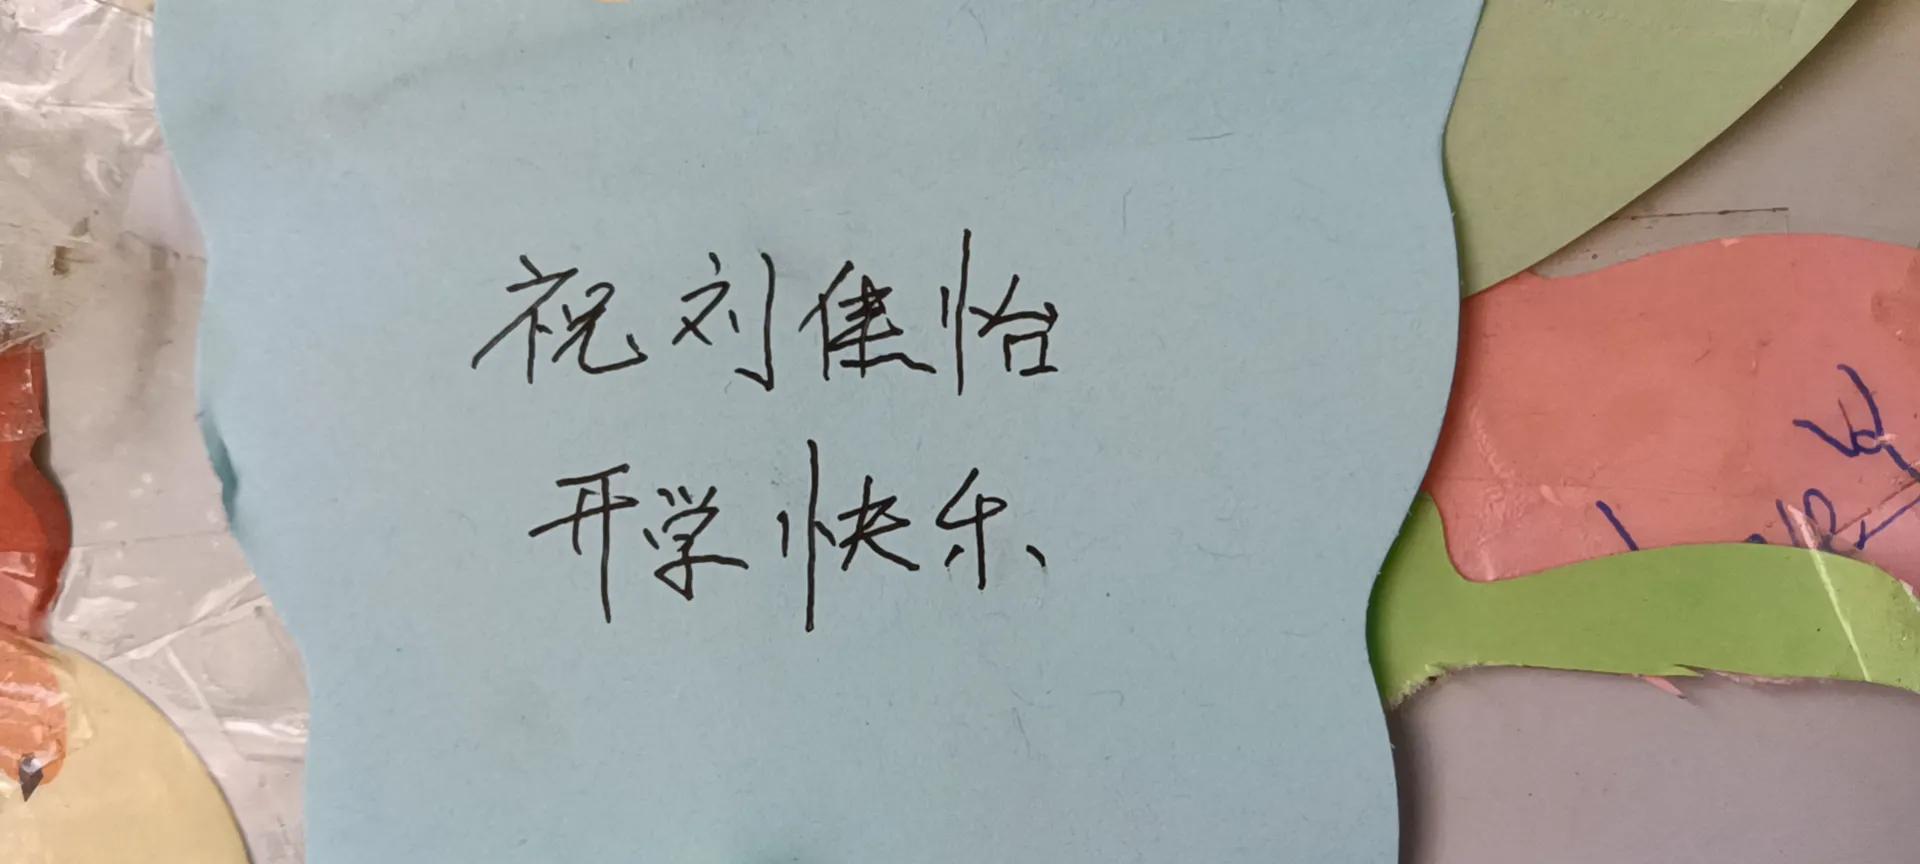 祝刘佳怡
开学快乐